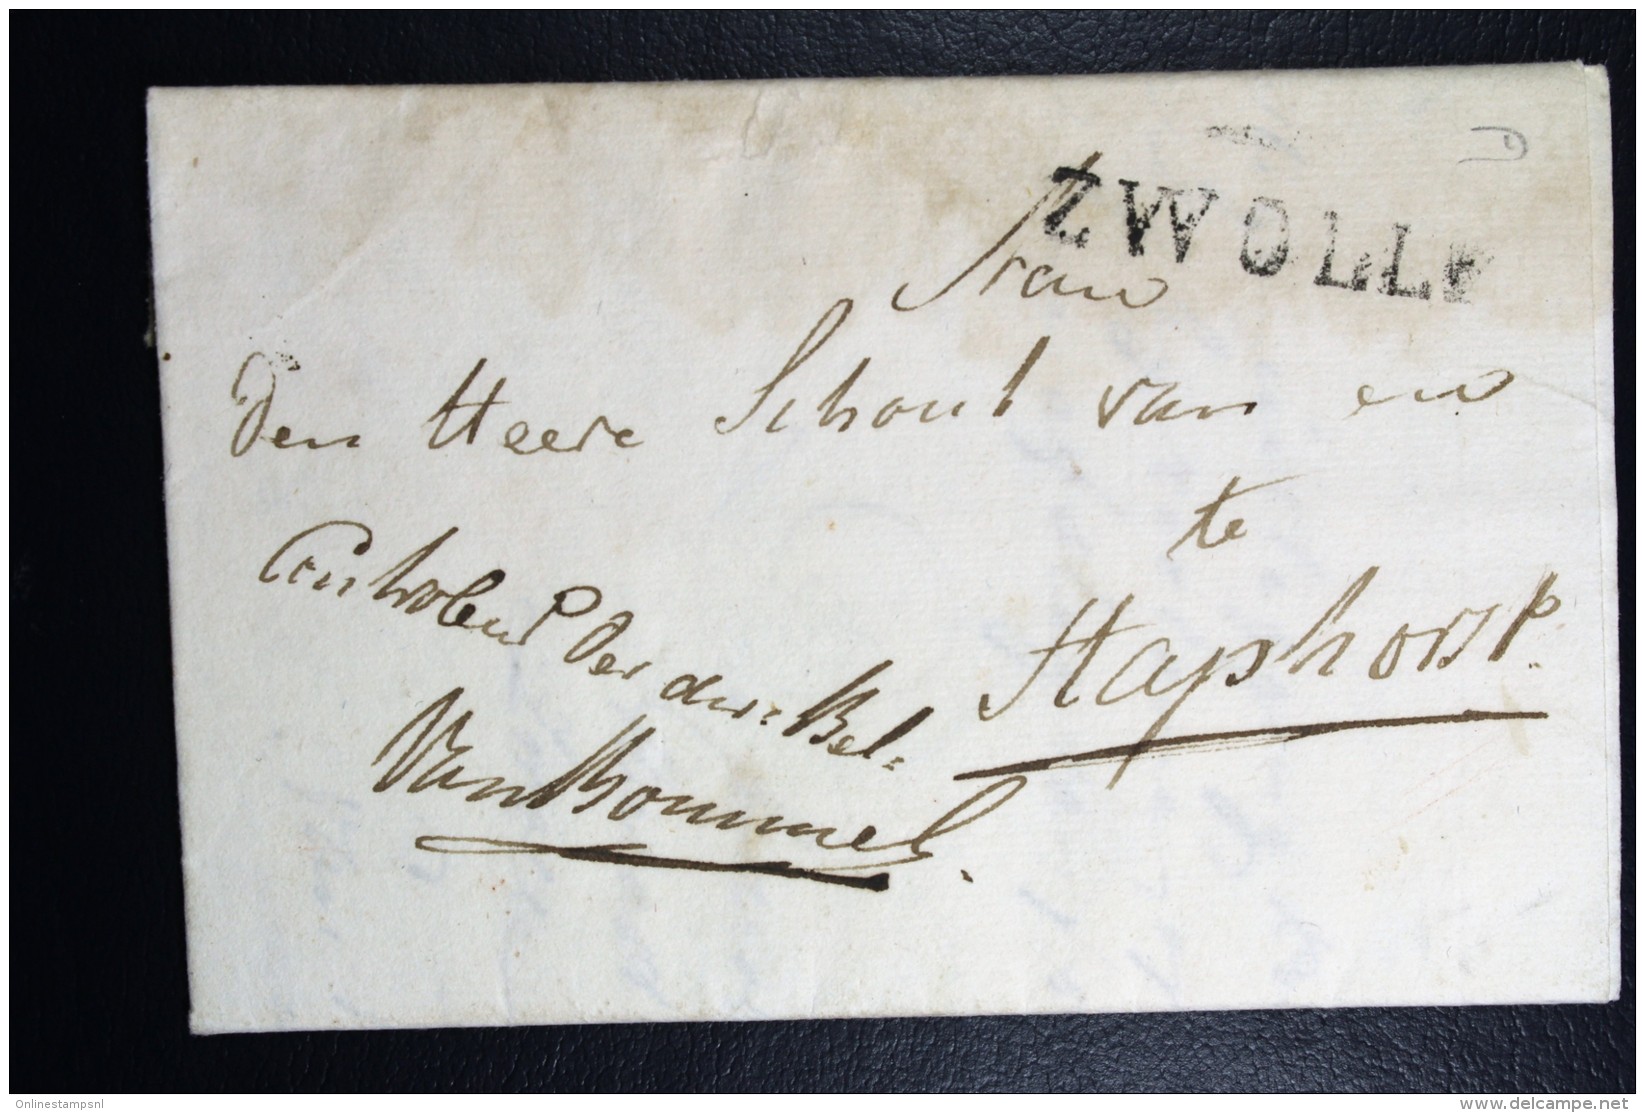 ZWOLLE
Aan
Den Heere Schout van en
te
Staphorst.
Controleur der dir: Bel:
Van Rommel
Onlinestampsnl
www.delcampe.net